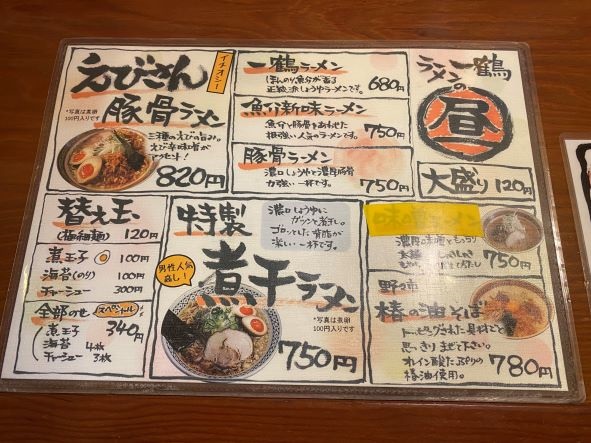 えびさん
イチオシ!
豚骨ラーメン
*写真は煮卵
100円入りです
三種のえびの旨み。
えび辛味噌が
アクセント!
820円
一鶴ラーメン
ほんのり魚分が香る
正統派しょうゆラーメンです。
680円
魚介新味ラーメン
魚介と豚骨をあわせた
根強い人気のラーメンです。
750円
豚骨ラーメン
濃口しょうゆと濃厚豚骨
力強い一杯です。
750円
一鶴
ラーメンの
昼
大盛り 120円
替え玉
(極細麺) 120円
煮玉子 100円
海苔(のり) 100円
チャーシュー 300円
全部のせ スペシャル
340円
煮玉子
海苔 4枚
チャーシュー 3枚
特製
濃口しょうゆに
ガツンと煮干し。
ゴロッとした背脂が
楽しい一杯です。
煮干ラーメン
男性人気
高し!
*写真は煮卵
100円入りです
750円
味噌ラーメン
濃厚味噌ともっちり
750円
野の
椿の油そば
思っきりまぜて下さい。
オレイン酸たっぷりの
椿油使用。
780円